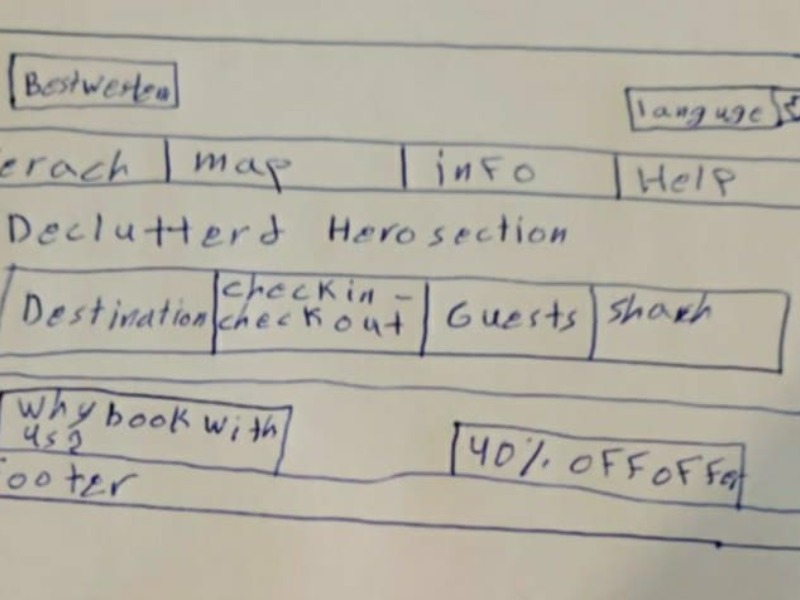 Bestwesten
languge
erach map info Help
Declutterd Hero section
Destination checkin - checkout Guests
Why book with us?
40% OFF OFFer
ooter